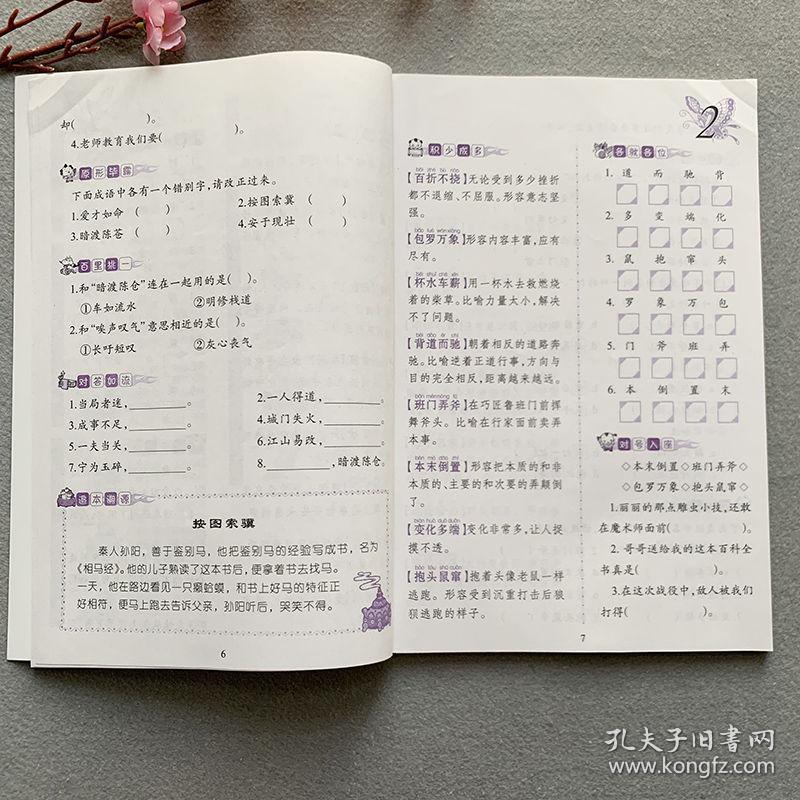 却(　　　　)。
4.老师教育我们要(　　　　)。
原形毕露
下面成语中各有一个错别字,请改正过来。
1.爱才如命 (　　)　　2.按图索冀 (　　)
3.暗渡陈苍 (　　)　　4.安于现壮 (　　)
百里挑一
1.和“暗渡陈仓”连在一起用的是(　　)。
①车如流水　　②明修栈道
2.和“唉声叹气”意思相近的是(　　)。
①长吁短叹　　②灰心丧气
对答如流
1.当局者迷,________。　　2.一人得道,________。
3.成事不足,________。　　4.城门失火,________。
5.一夫当关,________。　　6.江山易改,________。
7.宁为玉碎,________。　　8.________,暗渡陈仓。
追本溯源
按图索骥
秦人孙阳，善于鉴别马，他把鉴别马的经验写成书，名为
《相马经》。他的儿子熟读了这本书后，便拿着书去找马。
一天，他在路边看见一只癞蛤蟆，和书上好马的特征正
好相符，便马上跑去告诉父亲，孙阳听后，哭笑不得。
6
2
积少成多
bǎi zhé bù náo
【百折不挠】无论受到多少挫折
都不退缩、不屈服。形容意志坚
强。
bāo luó wàn xiàng
【包罗万象】形容内容丰富,应有
尽有。
bēi shuǐ chē xīn
【杯水车薪】用一杯水去救燃烧
着的柴草。比喻力量太小,解决
不了问题。
bèi dào ér chí
【背道而驰】朝着相反的道路奔
驰。比喻逆着正道行事,方向与
目的完全相反,距离越来越远。
bān mén nòng fǔ
【班门弄斧】在巧匠鲁班门前挥
舞斧头。比喻在行家面前卖弄
本事。
běn mò dào zhì
【本末倒置】形容把本质的和非
本质的、主要的和次要的弄颠倒
了。
biàn huà duō duān
【变化多端】变化非常多,让人捉
摸不透。
bào tóu shǔ cuàn
【抱头鼠窜】抱着头像老鼠一样
逃跑。形容受到沉重打击后狼
狈逃跑的样子。
各就各位
1. 道 而 驰 背
2. 多 变 端 化
3. 鼠 抱 窜 头
4. 罗 象 万 包
5. 门 斧 班 弄
6. 本 倒 置 末
对号入座
◇本末倒置◇班门弄斧◇
◇包罗万象◇抱头鼠窜◇
1.丽丽的那点雕虫小技,还敢
在魔术师面前(　　　　)。
2.哥哥送给我的这本百科全
书真是(　　　　)。
3.在这次战役中,敌人被我们
打得(　　　　)。
7
孔夫子旧书网
www.kongfz.com